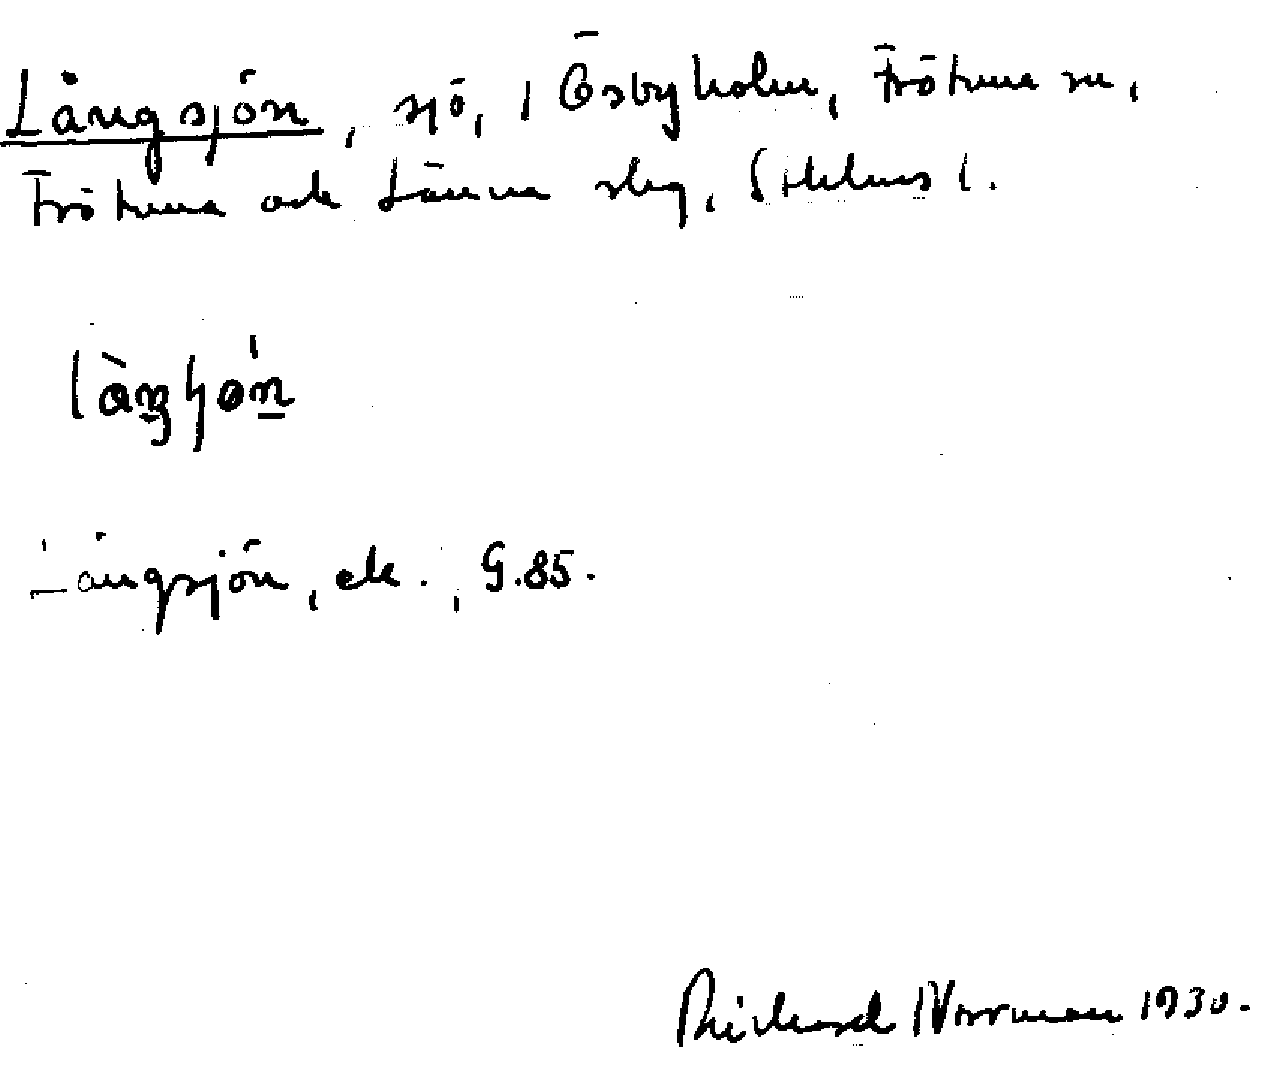 Långsjön, sjö, i Ösbyholm, Frötuna sn,
Frötuna och Länna skg, Sthlms l.
Långsjön, ek., G.85.
Rickard Norrman 1930.